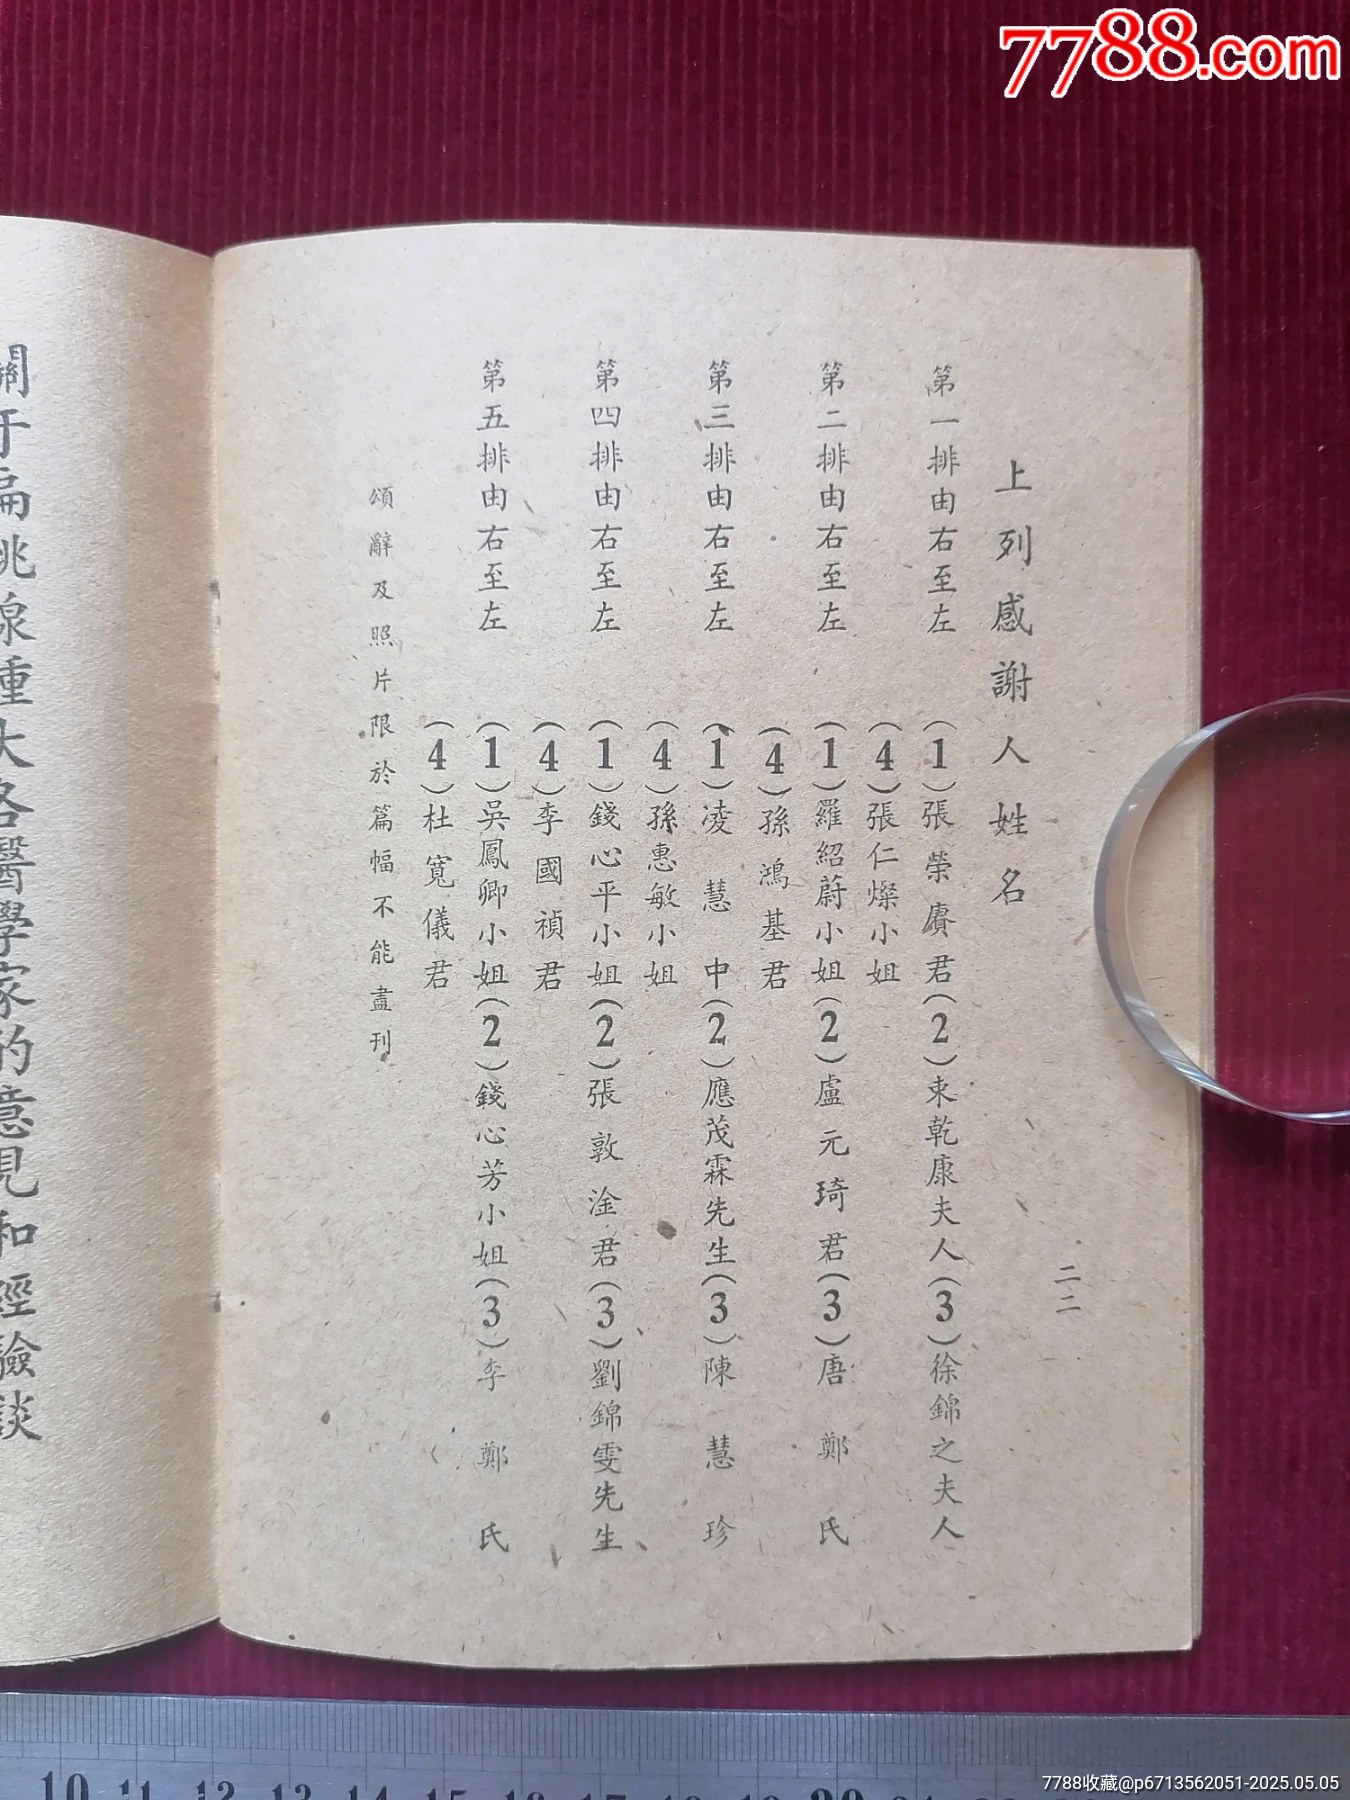 7788.com
二二
上列感謝人姓名
第一排由右至左 (1)張榮賡君(2)束乾康夫人(3)徐錦之夫人
(4)張仁燦小姐
第二排由右至左 (1)羅紹蔚小姐(2)盧元琦君(3)唐鄭氏
(4)孫鴻基君
第三排由右至左 (1)凌慧中(2)應茂霖先生(3)陳慧珍
(4)孫惠敏小姐
第四排由右至左 (1)錢心平小姐(2)張敦淦君(3)劉錦雯先生
(4)李國禎君
第五排由右至左 (1)吳鳳卿小姐(2)錢心芳小姐(3)李鄭氏
(4)杜寬儀君
頌辭及照片限於篇幅不能盡刊
關于扁桃腺腫大各醫學家的意見和經驗談
10 11 12 13 14 15 16 17 18 19 20
7788收藏@p6713562051-2025.05.05